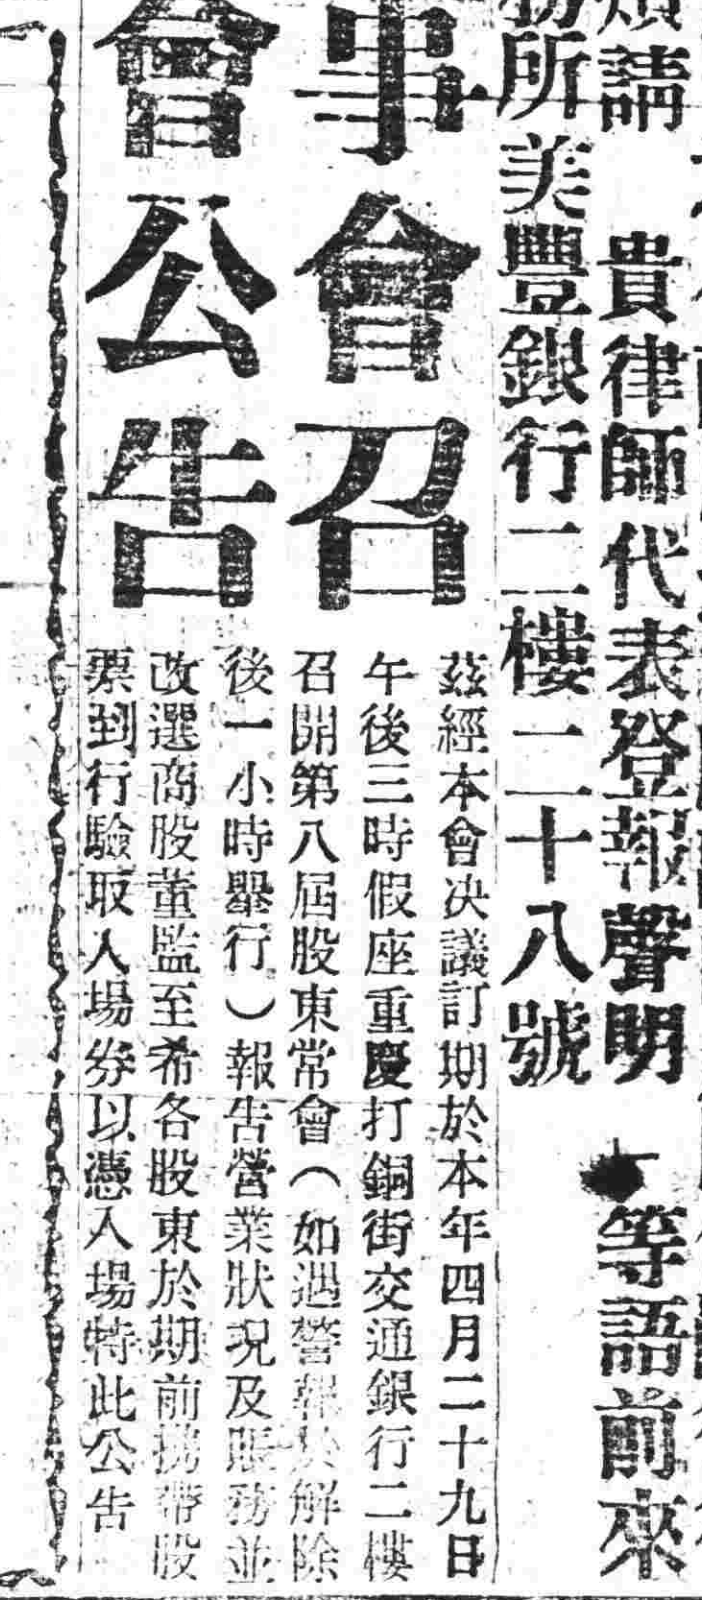 煩請　貴律師代表登報聲明
等語前來
務所美豐銀行二樓二十八號
事會召
會公告
茲經本會决議訂期於本年四月二十九日
午後三時假座重慶打銅街交通銀行二樓
召開第八屆股東常會（如遇警報於解除
後一小時舉行）報告營業狀况及賬務並
改選商股董監至希各股東於期前携帶股
票到行驗取入場券以憑入場特此公告